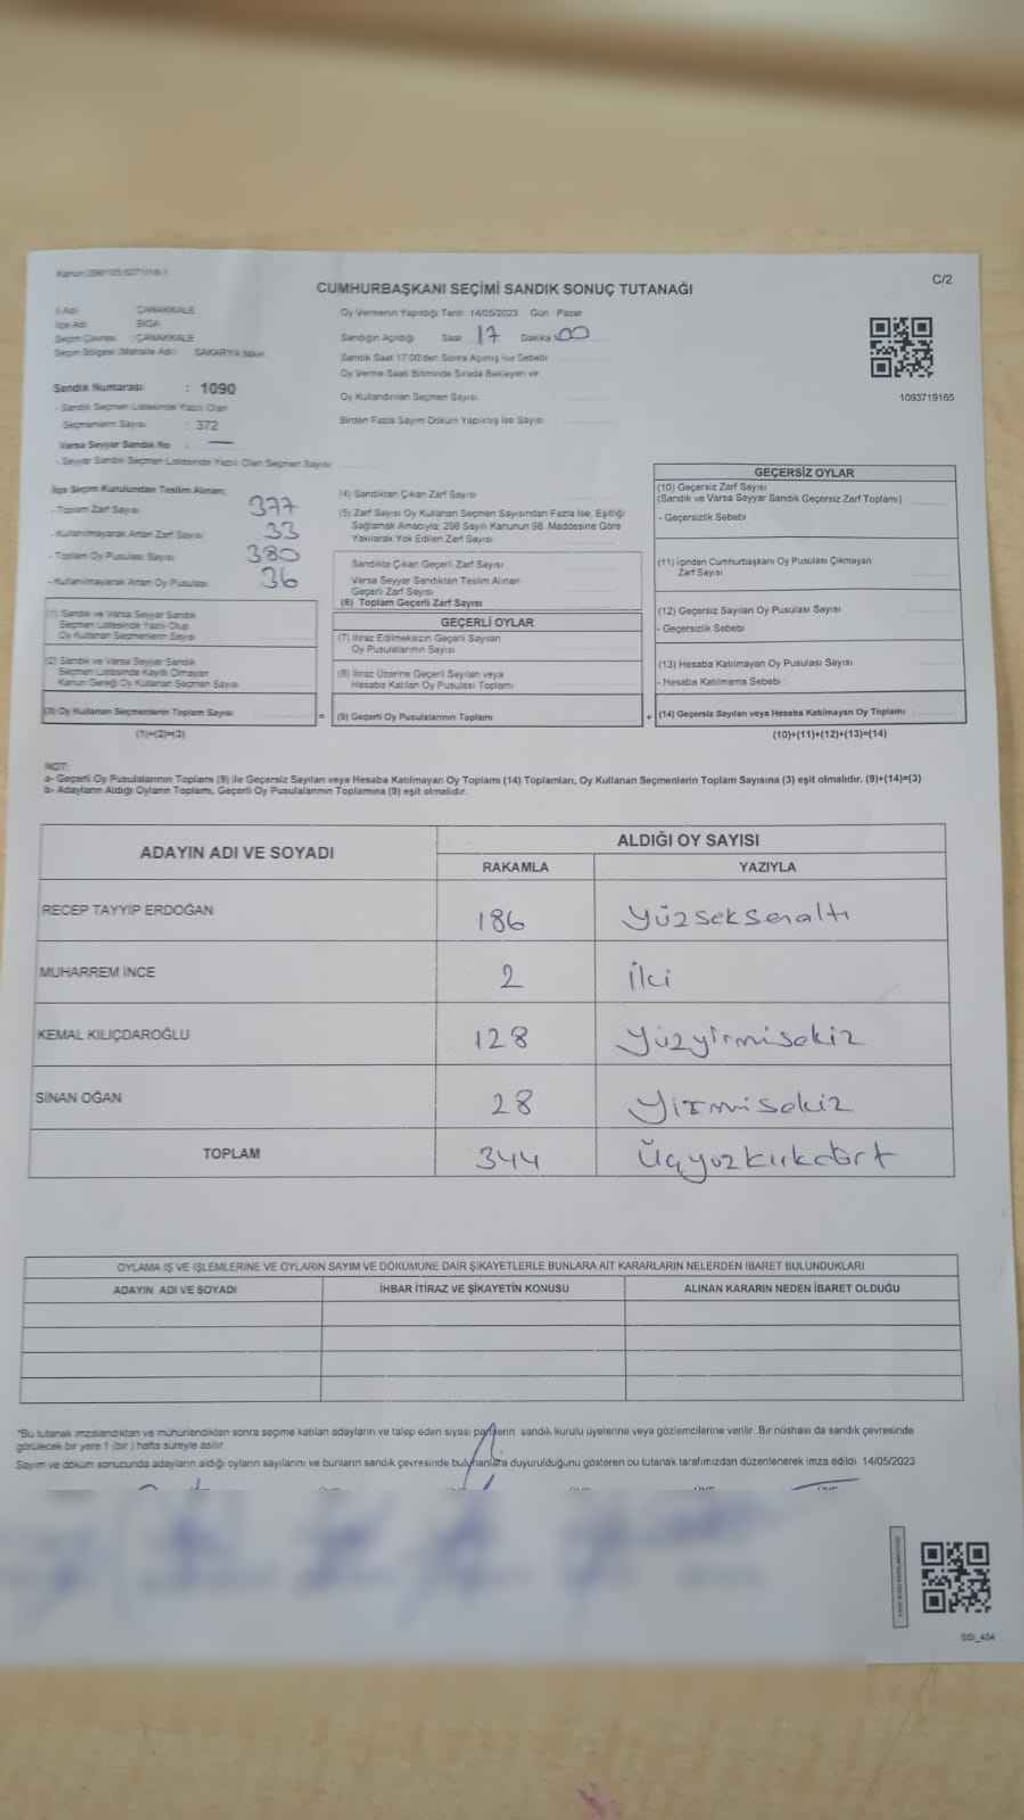 C/2
CUMHURBAŞKANI SEÇİMİ SANDIK SONUÇ TUTANAĞI
İl Adı : ÇANAKKALE
İlçe Adı : BİGA
Seçim Çevresi : ÇANAKKALE
Seçim Bölgesi (Mahalle Adı) : SAKARYA
Oy Vermenin Yapıldığı Tarih 14/05/2023 Gün Pazar
Sandığın Açıldığı Saat 17 Dakika 00
Sandık Saat 17:00'den Sonra Açılmış ise Sebebi
Oy Verme Saati Bitiminde Sırada Bekleyen ve
Oy Kullandırılan Seçmen Sayısı
Birden Fazla Sayım Döküm Yapılmış İse Sayısı
1093719165
Sandık Numarası : 1090
- Sandık Seçmen Listesinde Yazılı Olan
Seçmenlerin Sayısı : 372
Varsa Seyyar Sandık No : —
- Seyyar Sandık Seçmen Listesinde Yazılı Olan Seçmen Sayısı
İlçe Seçim Kurulundan Teslim Alınan;
- Toplam Zarf Sayısı 377
- Kullanılmayarak Artan Zarf Sayısı 33
- Toplam Oy Pusulası Sayısı 380
- Kullanılmayarak Artan Oy Pusulası 36
(1) Sandık ve Varsa Seyyar Sandık
Seçmen Listesinde Yazılı Olup
Oy Kullanan Seçmenlerin Sayısı
(2) Sandık ve Varsa Seyyar Sandık
Seçmen Listesinde Kayıtlı Olmayan
Kanun Gereği Oy Kullanan Seçmen Sayısı
(3) Oy Kullanan Seçmenlerin Toplam Sayısı
(1)+(2)=(3)
=
(4) Sandıktan Çıkan Zarf Sayısı
(5) Zarf Sayısı Oy Kullanan Seçmen Sayısından Fazla İse, Eşitliği
Sağlamak Amacıyla; 298 Sayılı Kanunun 98. Maddesine Göre
Yakılarak Yok Edilen Zarf Sayısı
Sandıkta Çıkan Geçerli Zarf Sayısı
Varsa Seyyar Sandıktan Teslim Alınan
Geçerli Zarf Sayısı
(6) Toplam Geçerli Zarf Sayısı
GEÇERLİ OYLAR
(7) İtiraz Edilmeksizin Geçerli Sayılan
Oy Pusulalarının Sayısı
(8) İtiraz Üzerine Geçerli Sayılan veya
Hesaba Katılan Oy Pusulası Toplamı
(9) Geçerli Oy Pusulalarının Toplamı
+
GEÇERSİZ OYLAR
(10) Geçersiz Zarf Sayısı
(Sandık ve Varsa Seyyar Sandık Geçersiz Zarf Toplamı)
- Geçersizlik Sebebi
(11) İçinden Cumhurbaşkanı Oy Pusulası Çıkmayan
Zarf Sayısı
(12) Geçersiz Sayılan Oy Pusulası Sayısı
- Geçersizlik Sebebi
(13) Hesaba Katılmayan Oy Pusulası Sayısı
- Hesaba Katılmama Sebebi
(14) Geçersiz Sayılan veya Hesaba Katılmayan Oy Toplamı
(10)+(11)+(12)+(13)=(14)
NOT:
a- Geçerli Oy Pusulalarının Toplamı (9) ile Geçersiz Sayılan veya Hesaba Katılmayan Oy Toplamı (14) Toplamları, Oy Kullanan Seçmenlerin Toplam Sayısına (3) eşit olmalıdır. (9)+(14)=(3)
b- Adayların Aldığı Oyların Toplamı, Geçerli Oy Pusulalarının Toplamına (9) eşit olmalıdır.
ADAYIN ADI VE SOYADI
ALDIĞI OY SAYISI
RAKAMLA YAZIYLA
RECEP TAYYİP ERDOĞAN 186 Yüzseksenaltı
MUHARREM İNCE 2 İki
KEMAL KILIÇDAROĞLU 128 Yüzyirmisekiz
SİNAN OĞAN 28 Yirmisekiz
TOPLAM 344 Üçyüzkırkdört
OYLAMA İŞ VE İŞLEMLERİNE VE OYLARIN SAYIM VE DÖKÜMÜNE DAİR ŞİKAYETLERLE BUNLARA AİT KARARLARIN NELERDEN İBARET BULUNDUKLARI
ADAYIN ADI VE SOYADI İHBAR İTİRAZ VE ŞİKAYETİN KONUSU ALINAN KARARIN NEDEN İBARET OLDUĞU
*Bu tutanak imzalandıktan ve mühürlendikten sonra seçime katılan adayların ve talep eden siyasi partilerin sandık kurulu üyelerine veya gözlemcilerine verilir. Bir nüshası da sandık çevresinde
görülecek bir yere 1 (bir) hafta süreyle asılır.
Sayım ve döküm sonucunda adayların aldığı oyların sayılarını ve bunların sandık çevresinde bulunanlara duyurulduğunu gösteren bu tutanak tarafımızdan düzenlenerek imza edildi. 14/05/2023